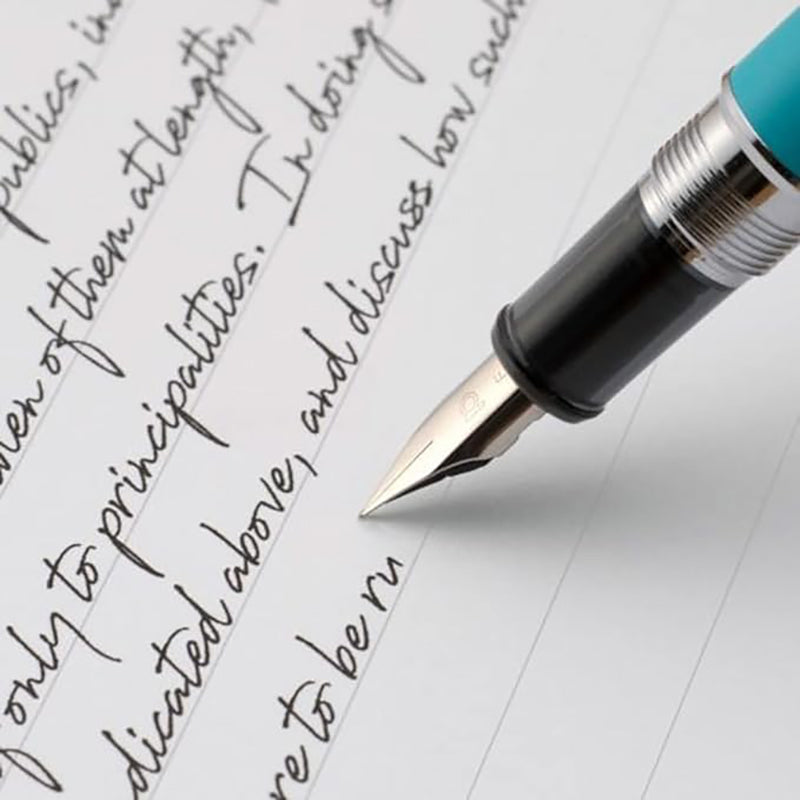 publics, in
tten of them at length,
f only to principalities. In doing s
dicated above, and discuss how such
re to be ru